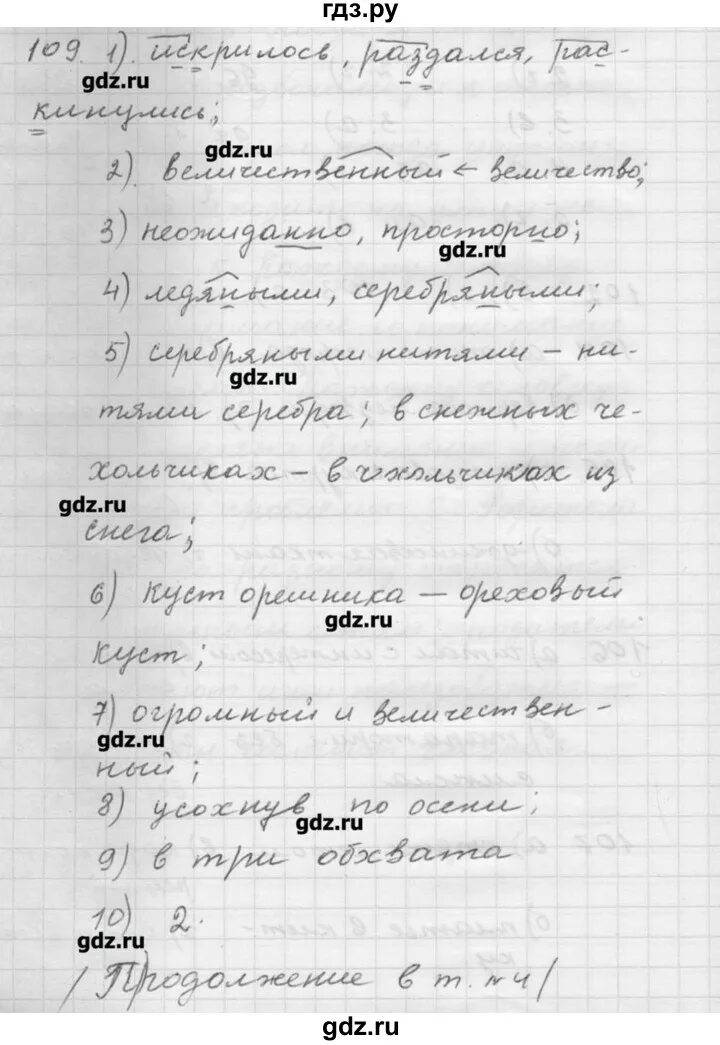 гдз.ру
109. 1). искрилось, раздался, рас-
gdz.ru
кинулись;
gdz.ru
2). величественный ← величество;
3) неожиданно, просторно;
gdz.ru
4) ледяными, серебряными;
5) серебряными нитями – ни-
gdz.ru
тями серебра; в снежных че-
хольчиках – в чехольчиках из
gdz.ru
снега;
6) куст орешника – ореховый
gdz.ru
куст;
7) огромный и величествен-
gdz.ru
ный;
8) усохнув по осени;
gdz.ru
9) в три обхвата
10) 2.
gdz.ru
/Продолжение в т. №4/
gdz.ru